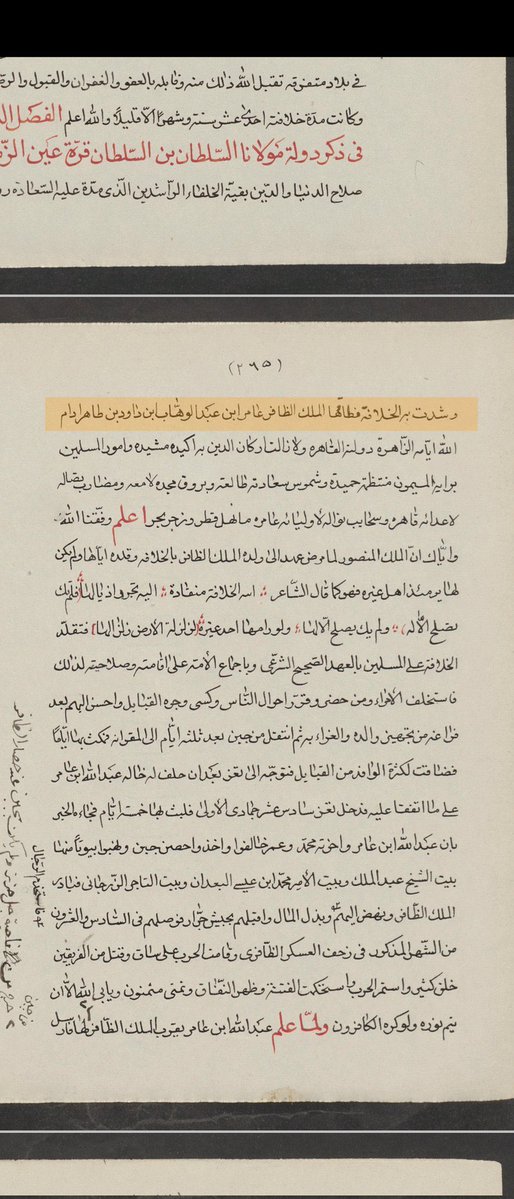 في بلاد متفرقه تقبل الله ذلك منه وقابله بالعفو والغفران والقبول والرضو
وكانت مدة خلافته احدى عشر سنة وشهرا الا قليلا والله اعلم الفصل ال
في ذكر دولة مولانا السلطان بن السلطان قرة عين الز
صلاح الدنيا والدين بقية الخلفاء الراشدين الذي مدة عليه السعادة رو
(٢٦٥)
وشدت به الخلافة نطاقها الملك الظافر عامر ابن عبد الوهاب ابن داود بن طاهر ادام
الله ايامه الزاهرة دولته القاهره ولا زالت اركان الدين به اكيده مشيده وامور المسلمين
برايه الميمون منتظمة حميدة وشموس سعادته طالعه وبروق مجده لامعه ومضارب نصاله
لاعدائه قاهره وسحايب نواله لاوليائه غامره ما هطل قطر وزجر بحر اعلم وفقنا الله
واياك ان الملك المنصور لما مرض عهد الى ولده الملك الظافر بالخلافه وقلده اياها ولم يكن
لها يومئذ اهل غيره فهو كما قال الشاعر اتته الخلافة منقادة اليه تجرر اذيالها فلم يك
تصلح الا له ولم يك يصلح الا لها ولو رامها احد غيره لزلزلت الارض زلزالها فتقلد
الخلافة على المسلمين بالعهد الصحيح الشرعي وباجماع الامة على امامته وصلاحيته لذلك
فاستخلف الامراء ومن حضر وقرر احوال الناس وكسى وجوه القبايل واحسن اليهم بعد
فراغه من تجهيز والده والعزاء به ثم انتقل من جبن بعد ثلثة ايام الى المقرانه فمكث بها اياما
فضاقت لكثرة الوافد من القبايل فتوجه الى تعز بعد ان حلف له خاله عبد الله ابن عامر
على ما اتفقا عليه فدخل تعز سادس عشر جمادى الاولى فلبث بها خمسة ايام فجاءه الخبر
بان عبد الله ابن عامر واخوته محمد وعمر خالفوا واخذوا حصن جبن ونهبوا بيوتا منها
بيت الشيخ عبد الملك وبيت الامير محمد ابن عيسى البعداني وبيت التاجر الزرجاني فبادر
الملك الظافر ونهض اليهم وبذل المال واقبلهم بجيش جرار فوصلهم في السادس والعشرون
من الشهر المذكور في زحف العسكر الظافري وقامت الحرب على ساق وقتل من الفريقين
خلق كثير واستمر الحرب واستحكمت الفتنة وظهر النفاق وتمنى متمنون ويابى الله الا ان
يتم نوره ولو كره الكافرون ولما علم عبد الله ابن عامر بقرب الملك الظافر